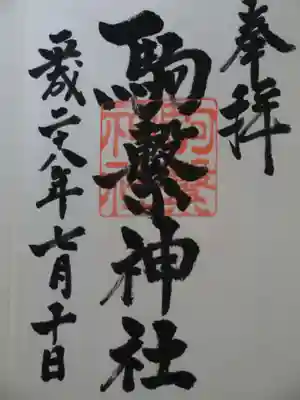 奉拝
駒繋神社
駒繋神社
平成二十八年七月十日